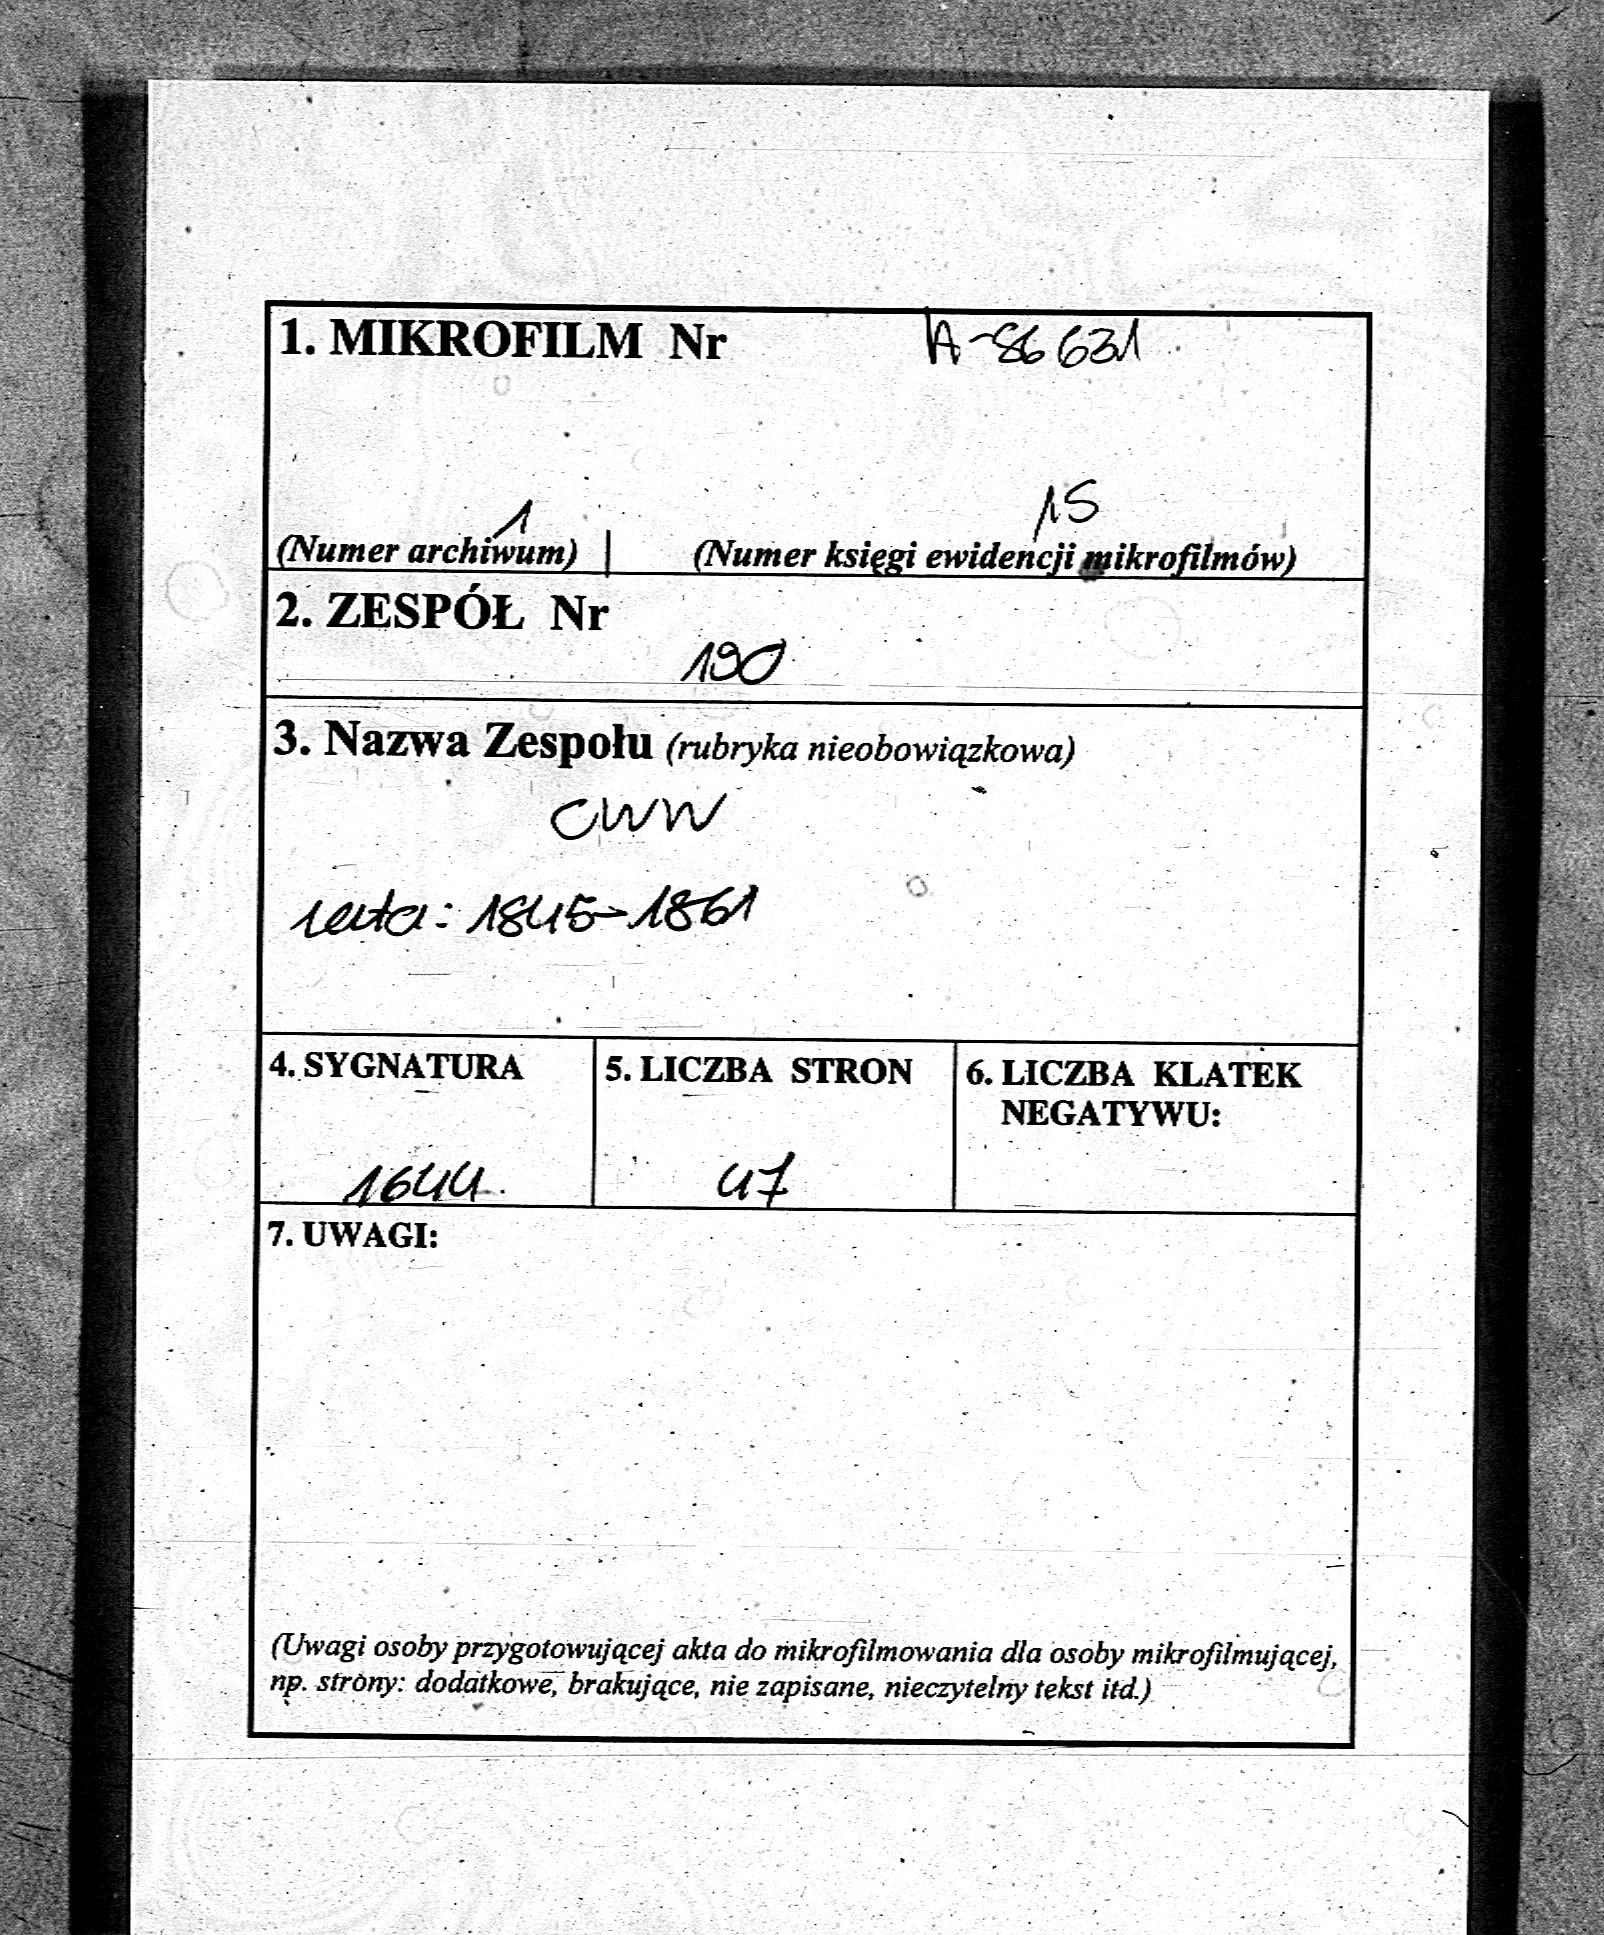 1. MIKROFILM Nr A-86631
1 15
(Numer archiwum) | (Numer księgi ewidencji mikrofilmów)
2. ZESPÓŁ Nr
190
3. Nazwa Zespołu (rubryka nieobowiązkowa)
CWW
lata: 1845-1861
4. SYGNATURA
1644
5. LICZBA STRON
47
6. LICZBA KLATEK
NEGATYWU:
7. UWAGI:
(Uwagi osoby przygotowującej akta do mikrofilmowania dla osoby mikrofilmującej,
np. strony: dodatkowe, brakujące, nie zapisane, nieczytelny tekst itd.)